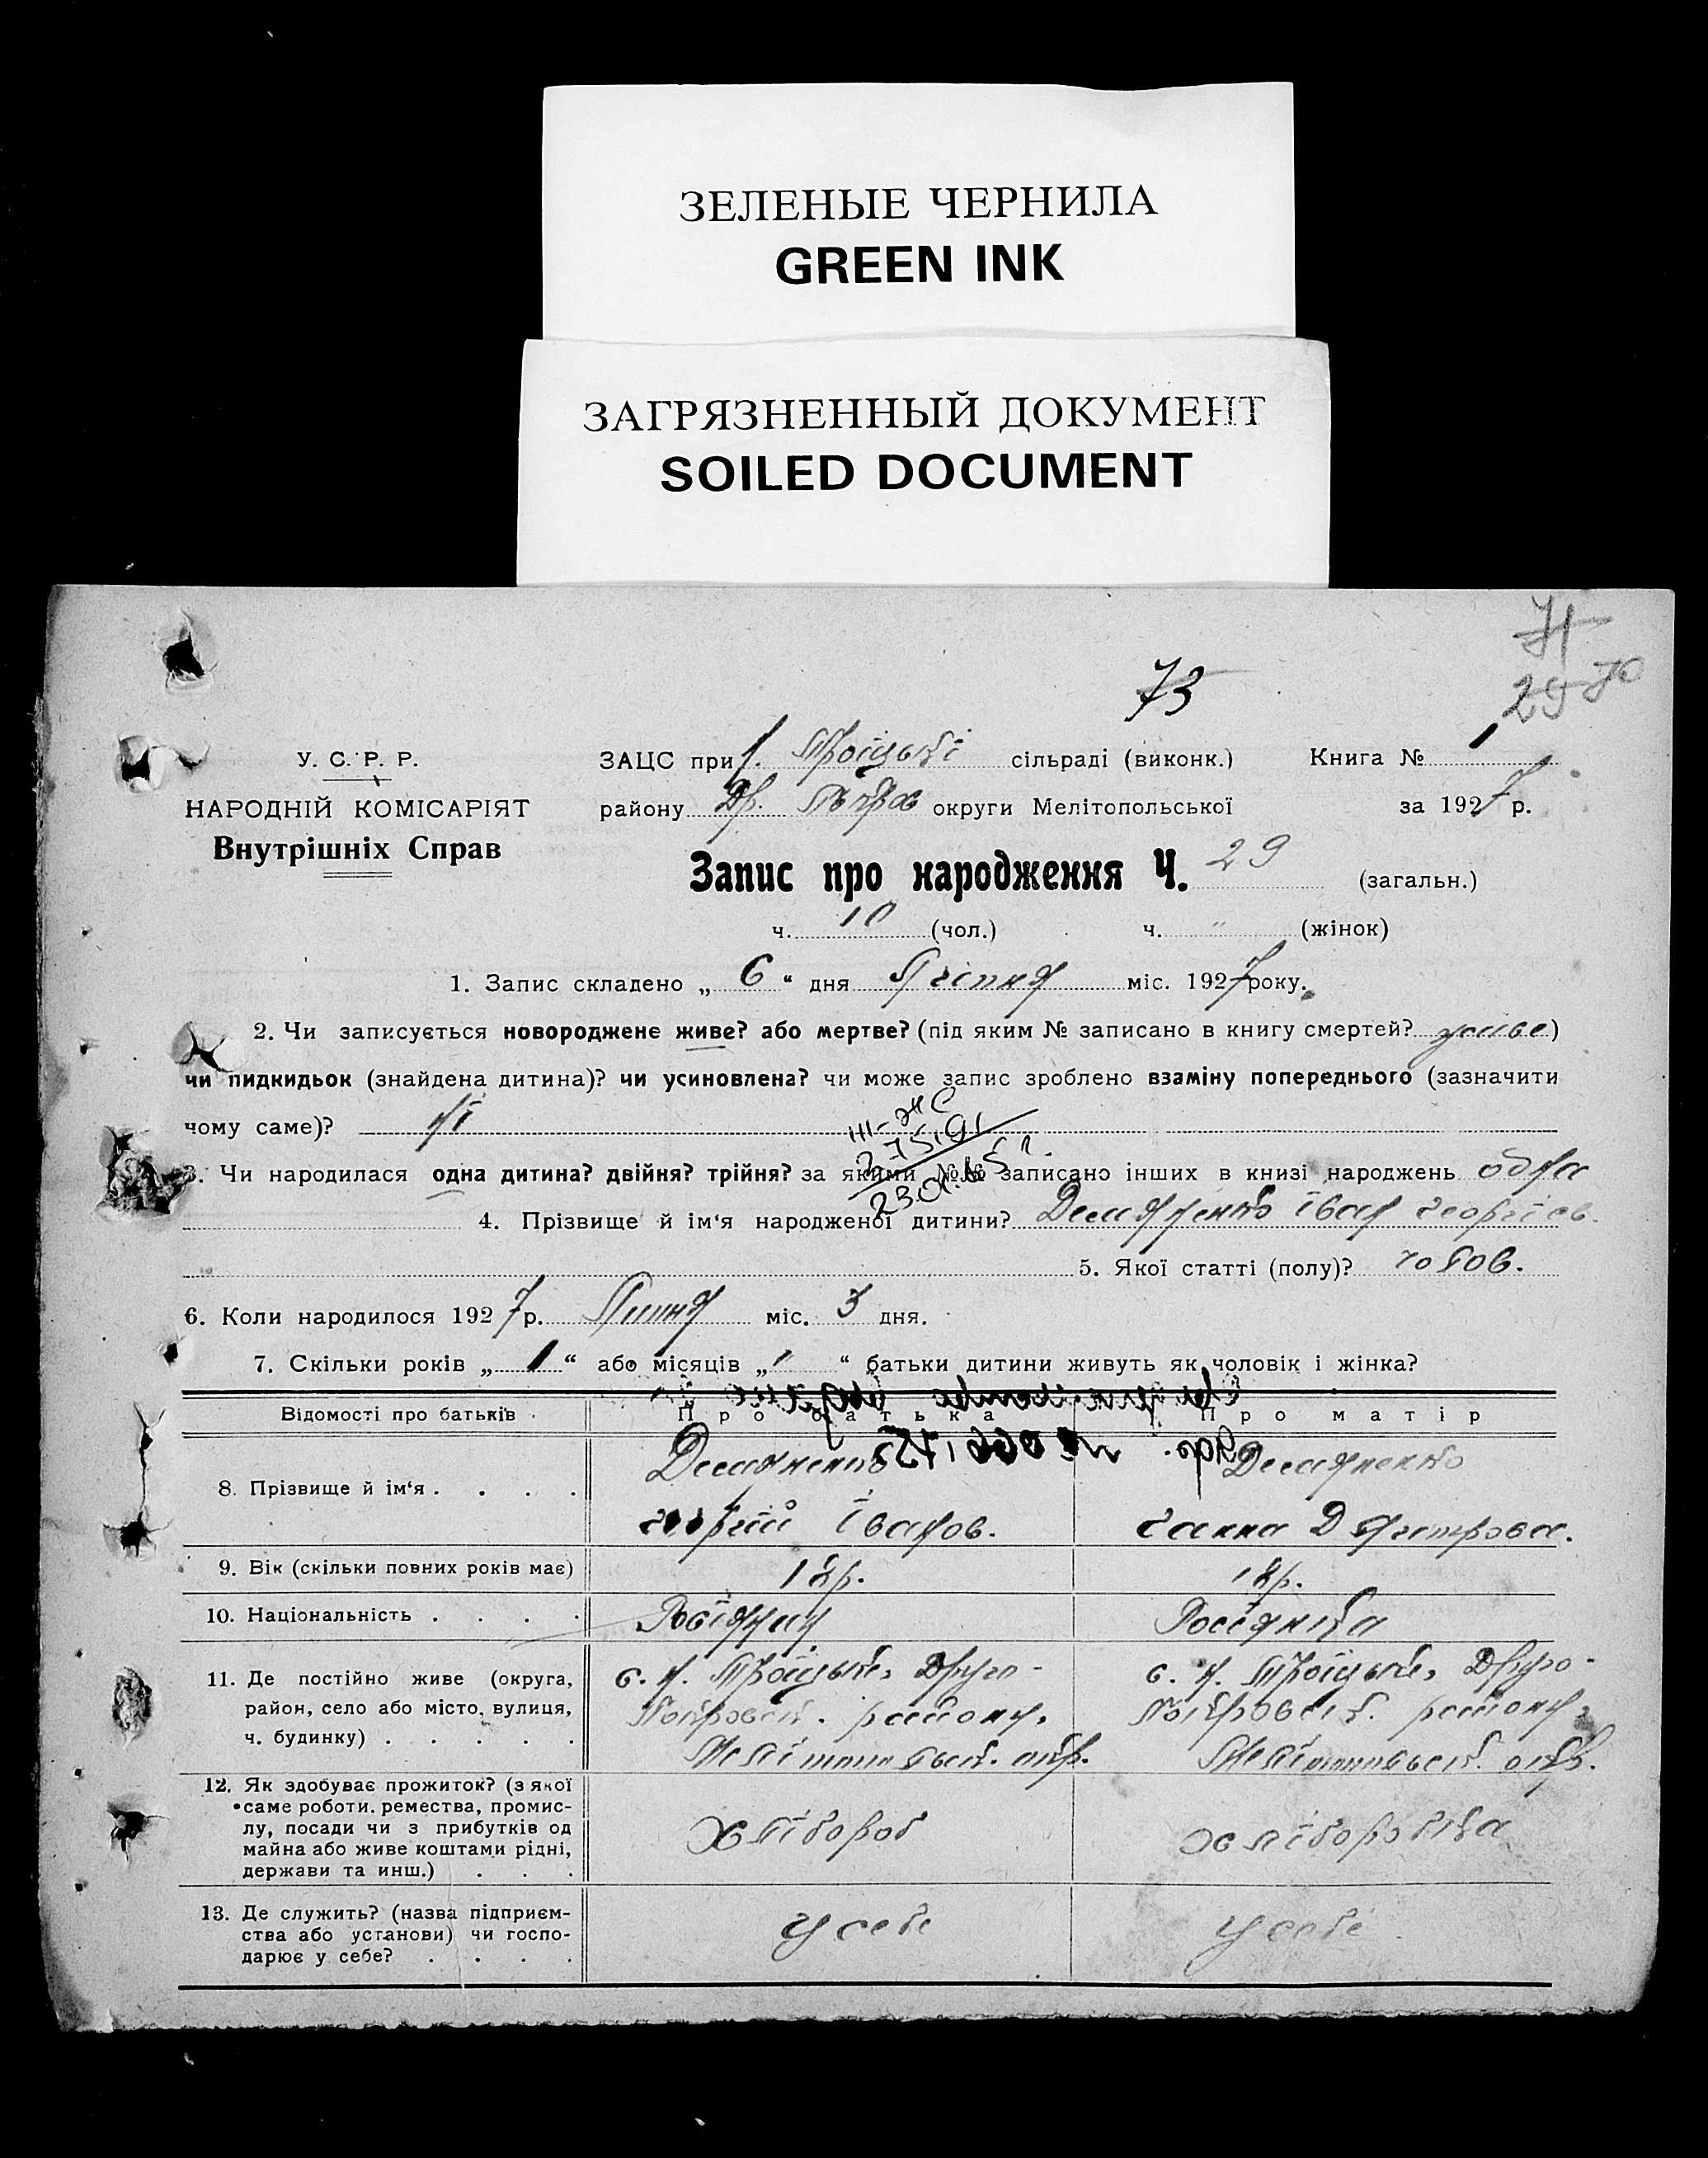 ЗЕЛЕНЫЕ ЧЕРНИЛА
GREEN INK
ЗАГРЯЗНЕННЫЙ ДОКУМЕНТ
SOILED DOCUMENT
71
73
29 70
У. С. Р. Р.
ЗАЦС при Н. Троїцькі сільраді (виконк.)
Книга № 1
НАРОДНІЙ КОМІСАРІЯТ
району Др. Покров округи Мелітопольської
за 1927 р.
Внутрішніх Справ
Запис про народження Ч. 29 (загальн.)
ч. 10 (чол.) ч. " (жінок)
1. Запис складено „ 6 “ дня Липня міс. 1927 року.
2. Чи записується новороджене живе? або мертве? (під яким № записано в книгу смертей? живе)
чи пидкидьок (знайдена дитина)? чи усиновлена? чи може запис зроблено взаміну попереднього (зазначити
чому саме)? Ні
III-ЖС
3. Чи народилася одна дитина? двійня? трійня? за якими №№ записано інших в книзі народжень одна
4. Прізвище й ім'я народженої дитини? Іван Георгієв.
5. Якої статті (полу)? чолов.
6. Коли народилося 1927 р. Липня міс. 3 дня.
7. Скільки років „ 1 “ або місяців „ " “ батьки дитини живуть як чоловік і жінка?
Відомості про батьків Про батька Про матір
8. Прізвище й ім'я . . . .
Георгій Іванов. Ганна Дмитрова.
9. Вік (скільки повних років має) 18р. 18р.
10. Національність . . . . Росіянин Росіянка
11. Де постійно живе (округа, с. Н. Троїцьке, Друго- с. Н. Троїцьке, Друго-
район, село або місто, вулиця, Покровськ. району, Покровськ. району,
ч. будинку) . . . . . Мелітопольськ. окр. Мелітопольськ. окр.
12. Як здобуває прожиток? (з якої
саме роботи. ремества, промис-
лу, посади чи з прибутків од Хлібороб хліборобка
майна або живе коштами рідні,
держави та инш.) . . .
13. Де служить? (назва підприєм-
ства або установи) чи госпо- У себе У себе
дарює у себе? . . . .